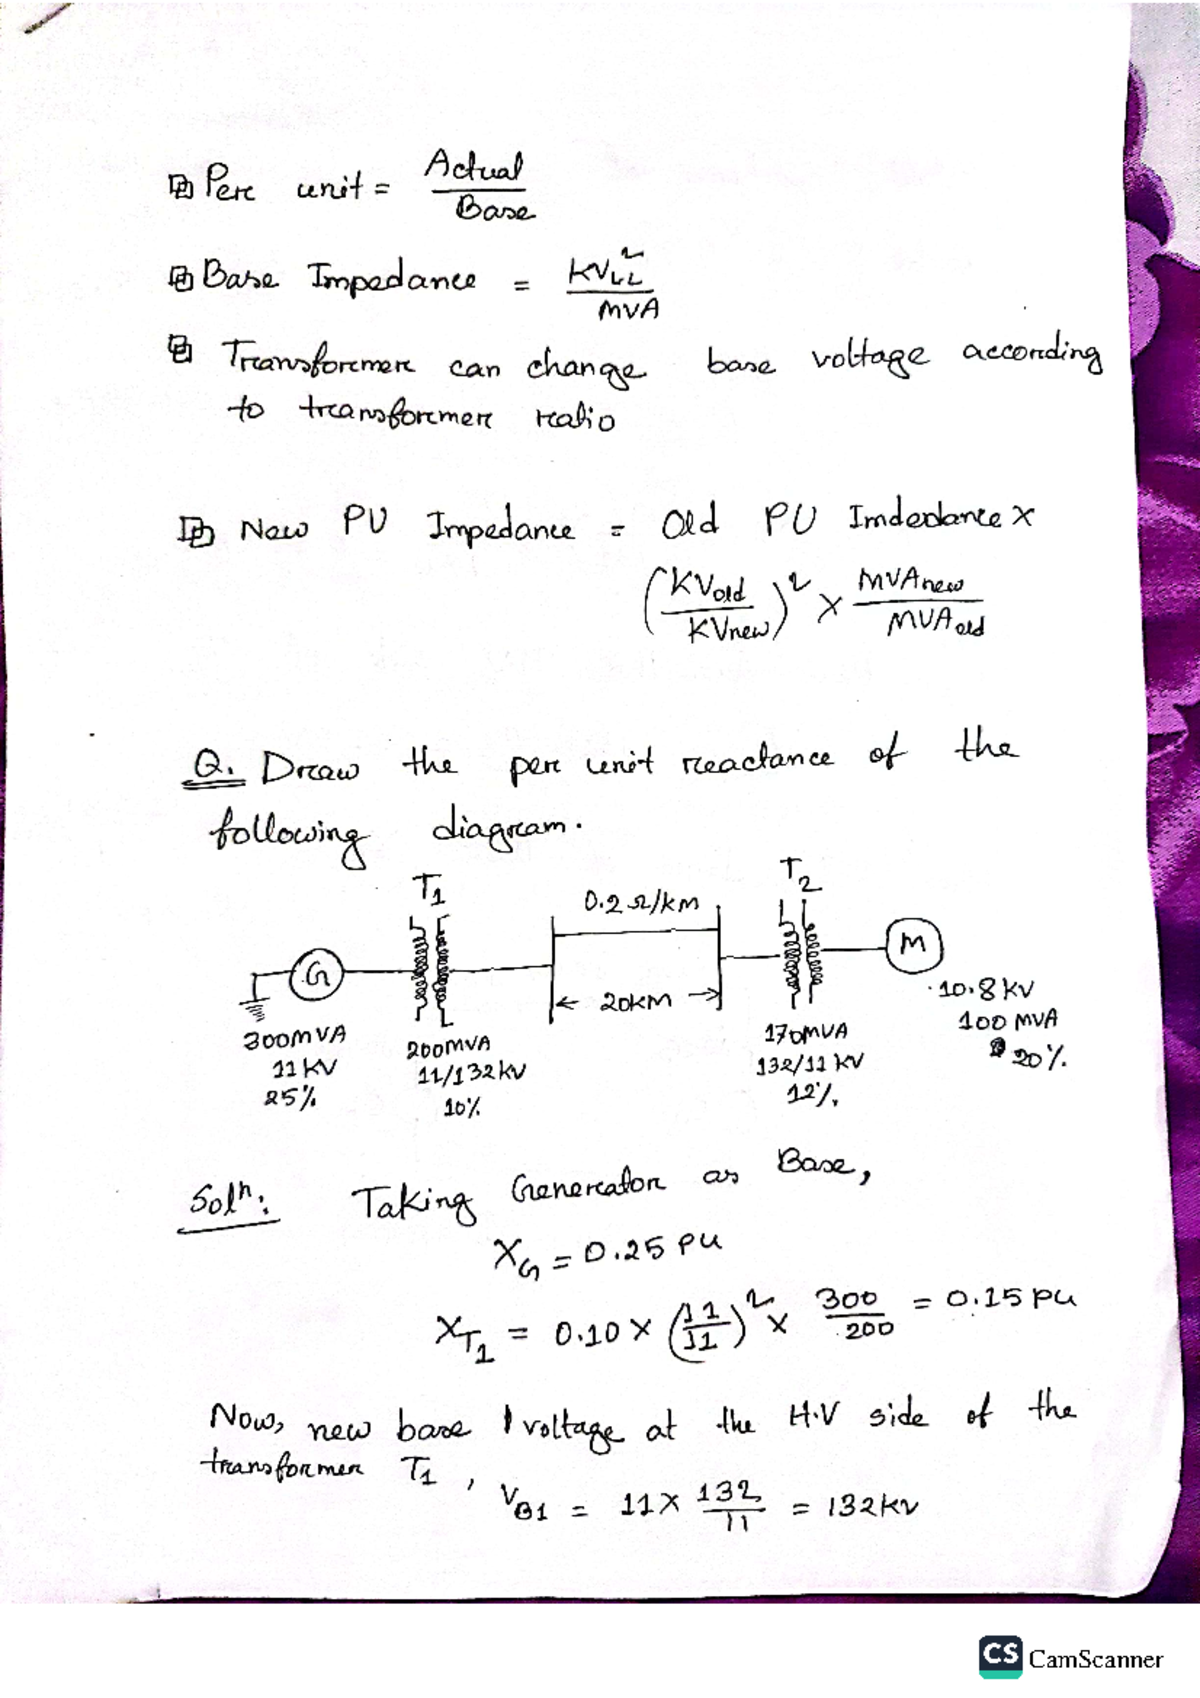 Per unit = Actual / Base
Base Impedance = KV_LL² / MVA
Transformer can change base voltage according
to transformer ratio
New PU Impedance = Old PU Imdedance ×
(KVold / KVnew)² × MVAnew / MVAold
Q. Draw the per unit reactance of the
following diagram.
T1
T2
0.2 Ω/KM
G
M
20KM
300MVA
11KV
25%
200MVA
11/132KV
10%
170MVA
132/11 KV
12%
10.8KV
100 MVA
20%
Solⁿ: Taking Generator as Base,
X_G = 0.25 PU
X_T1 = 0.10 × (11/11)² × 300/200 = 0.15 PU
Now, new base voltage at the H.V side of the
transformer T1,
V_B1 = 11 × 132/11 = 132KV
CS CamScanner